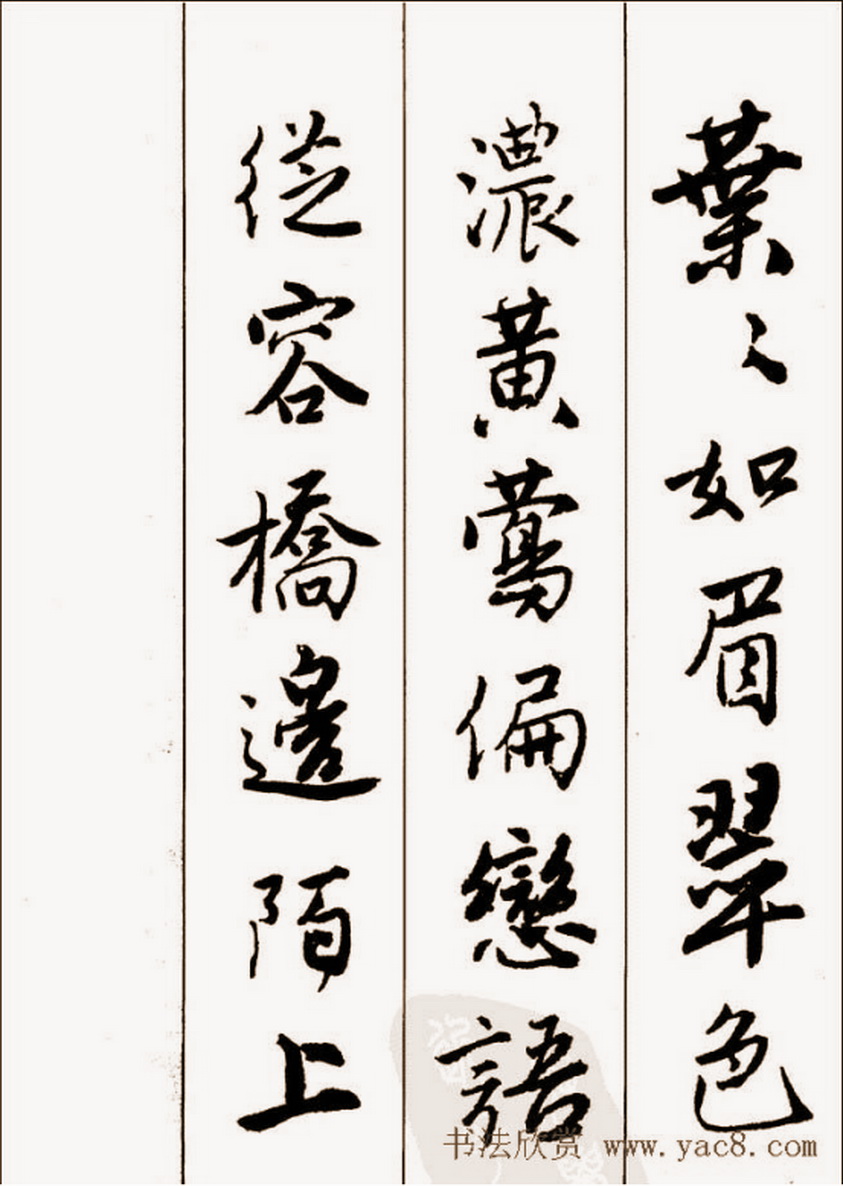 葉〻如眉翠色
濃黃鶯偏戀語
從容橋邊陌上
书法欣赏 www.yac8.com